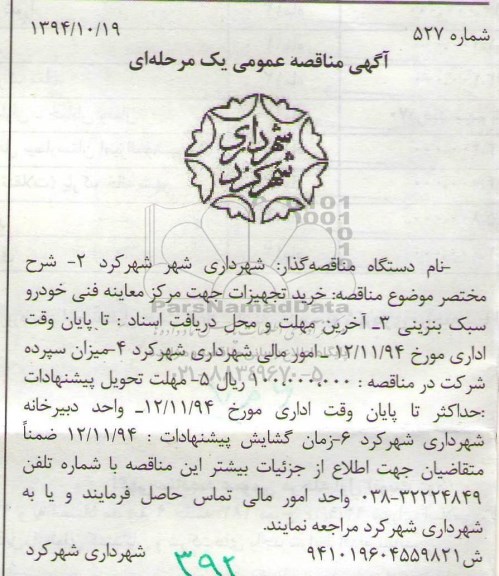 شماره ۵۲۷
۱۳۹۴/۱۰/۱۹
آگهی مناقصه عمومی یک مرحله‌ای
شهرداری
شهرکرد
-نام دستگاه مناقصه‌گذار: شهرداری شهر شهرکرد ۲- شرح
مختصر موضوع مناقصه: خرید تجهیزات جهت مرکز معاینه فنی خودرو
سبک بنزینی ۳ـ آخرین مهلت و محل دریافت اسناد : تا پایان وقت
اداری مورخ ۱۲/۱۱/۹۴- امور مالی شهرداری شهرکرد ۴-میزان سپرده
شرکت در مناقصه : ۹۰۰,۰۰۰,۰۰۰ ریال ۵- مهلت تحویل پیشنهادات
:حداکثر تا پایان وقت اداری مورخ ۱۲/۱۱/۹۴ـ واحد دبیرخانه
شهرداری شهرکرد ۶-زمان گشایش پیشنهادات : ۱۲/۱۱/۹۴ ضمناً
متقاضیان جهت اطلاع از جزئیات بیشتر این مناقصه با شماره تلفن
۰۳۸-۳۲۲۲۴۸۴۹ واحد امور مالی تماس حاصل فرمایند و یا به
شهرداری شهرکرد مراجعه نمایند.
ش۹۴۱۰۱۹۶۰۴۵۵۹۸۲۱ شهرداری شهرکرد
۳۹۲
ParsNamadData
۰۲۱-۸۸۳۴۹۶۷۰-۵